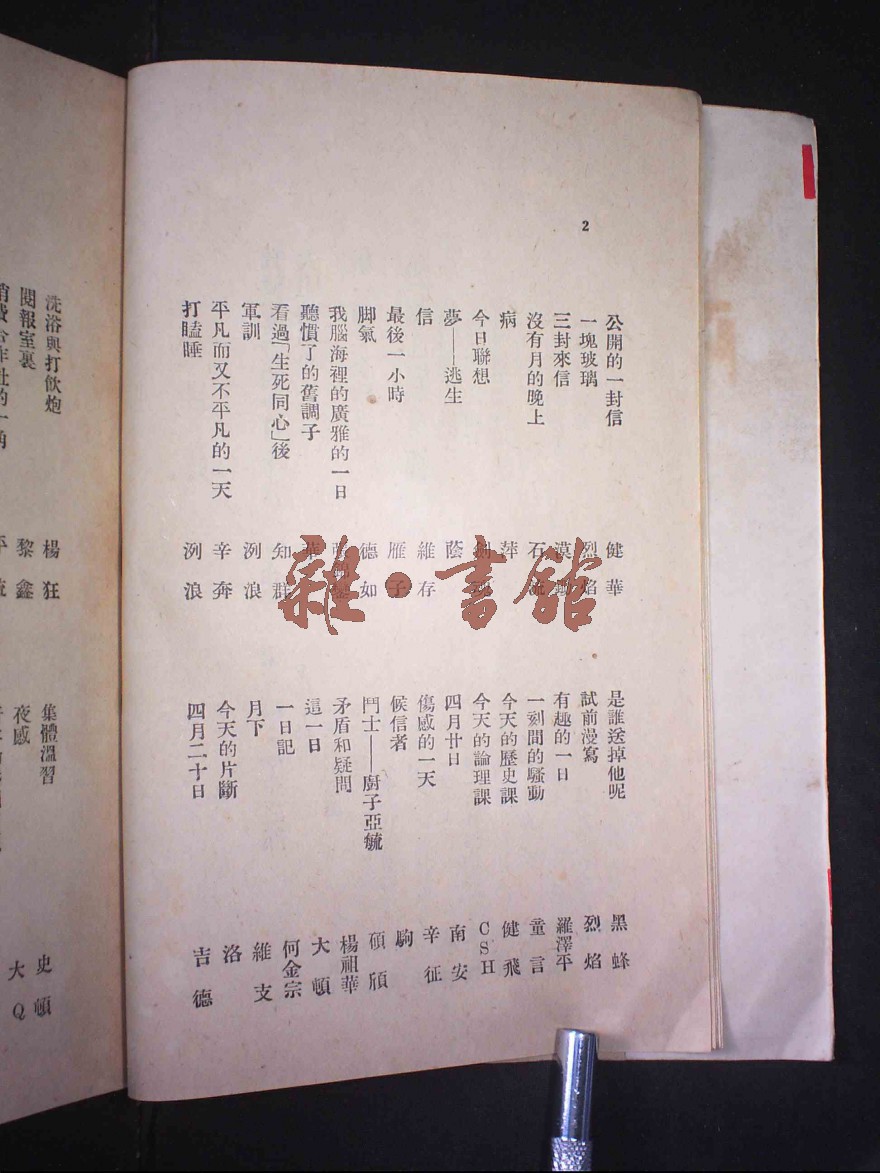 2
公開的一封信 健華
一塊玻璃 烈焰
三封來信
沒有月的晚上 石流
病 萍
今日聯想
夢——逃生 蔭
信 維存
最後一小時 雁子
脚氣 德如
我腦海裡的廣雅的一日
聽慣了的舊調子 華
看過「生死同心」後 知群
軍訓 洌浪
平凡而又不平凡的一天 辛奔
打瞌睡 洌浪
是誰送掉他呢 黑蜂
試前漫寫 烈焰
有趣的一日 羅澤平
一刻間的騷動 童言
今天的歷史課 健飛
今天的論理課 CSH
四月廿日 南安
傷感的一天 辛征
候信者 駒
鬥士——廚子亞毓 碩頎
矛盾和疑問 楊祖華
這一日 大頓
一日記 何金宗
月下 維支
今天的片斷 洛
四月二十日 吉德
洗浴與打飲炮 楊狂
閱報室裏 黎鑫
集體溫習 史頓
夜感 大Q
雜·書館